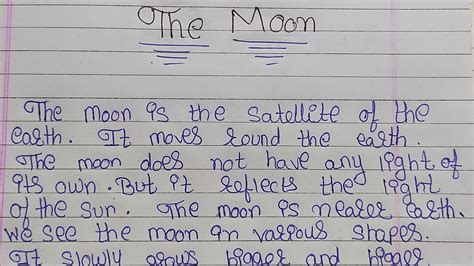 The Moon
The moon is the satellite of the
earth. It moves round the earth.
The moon does not have any light of
its own. But it reflects the light
of the Sun. The moon is nearer earth.
we see the moon in various shapes.
It slowly grows bigger and bigger